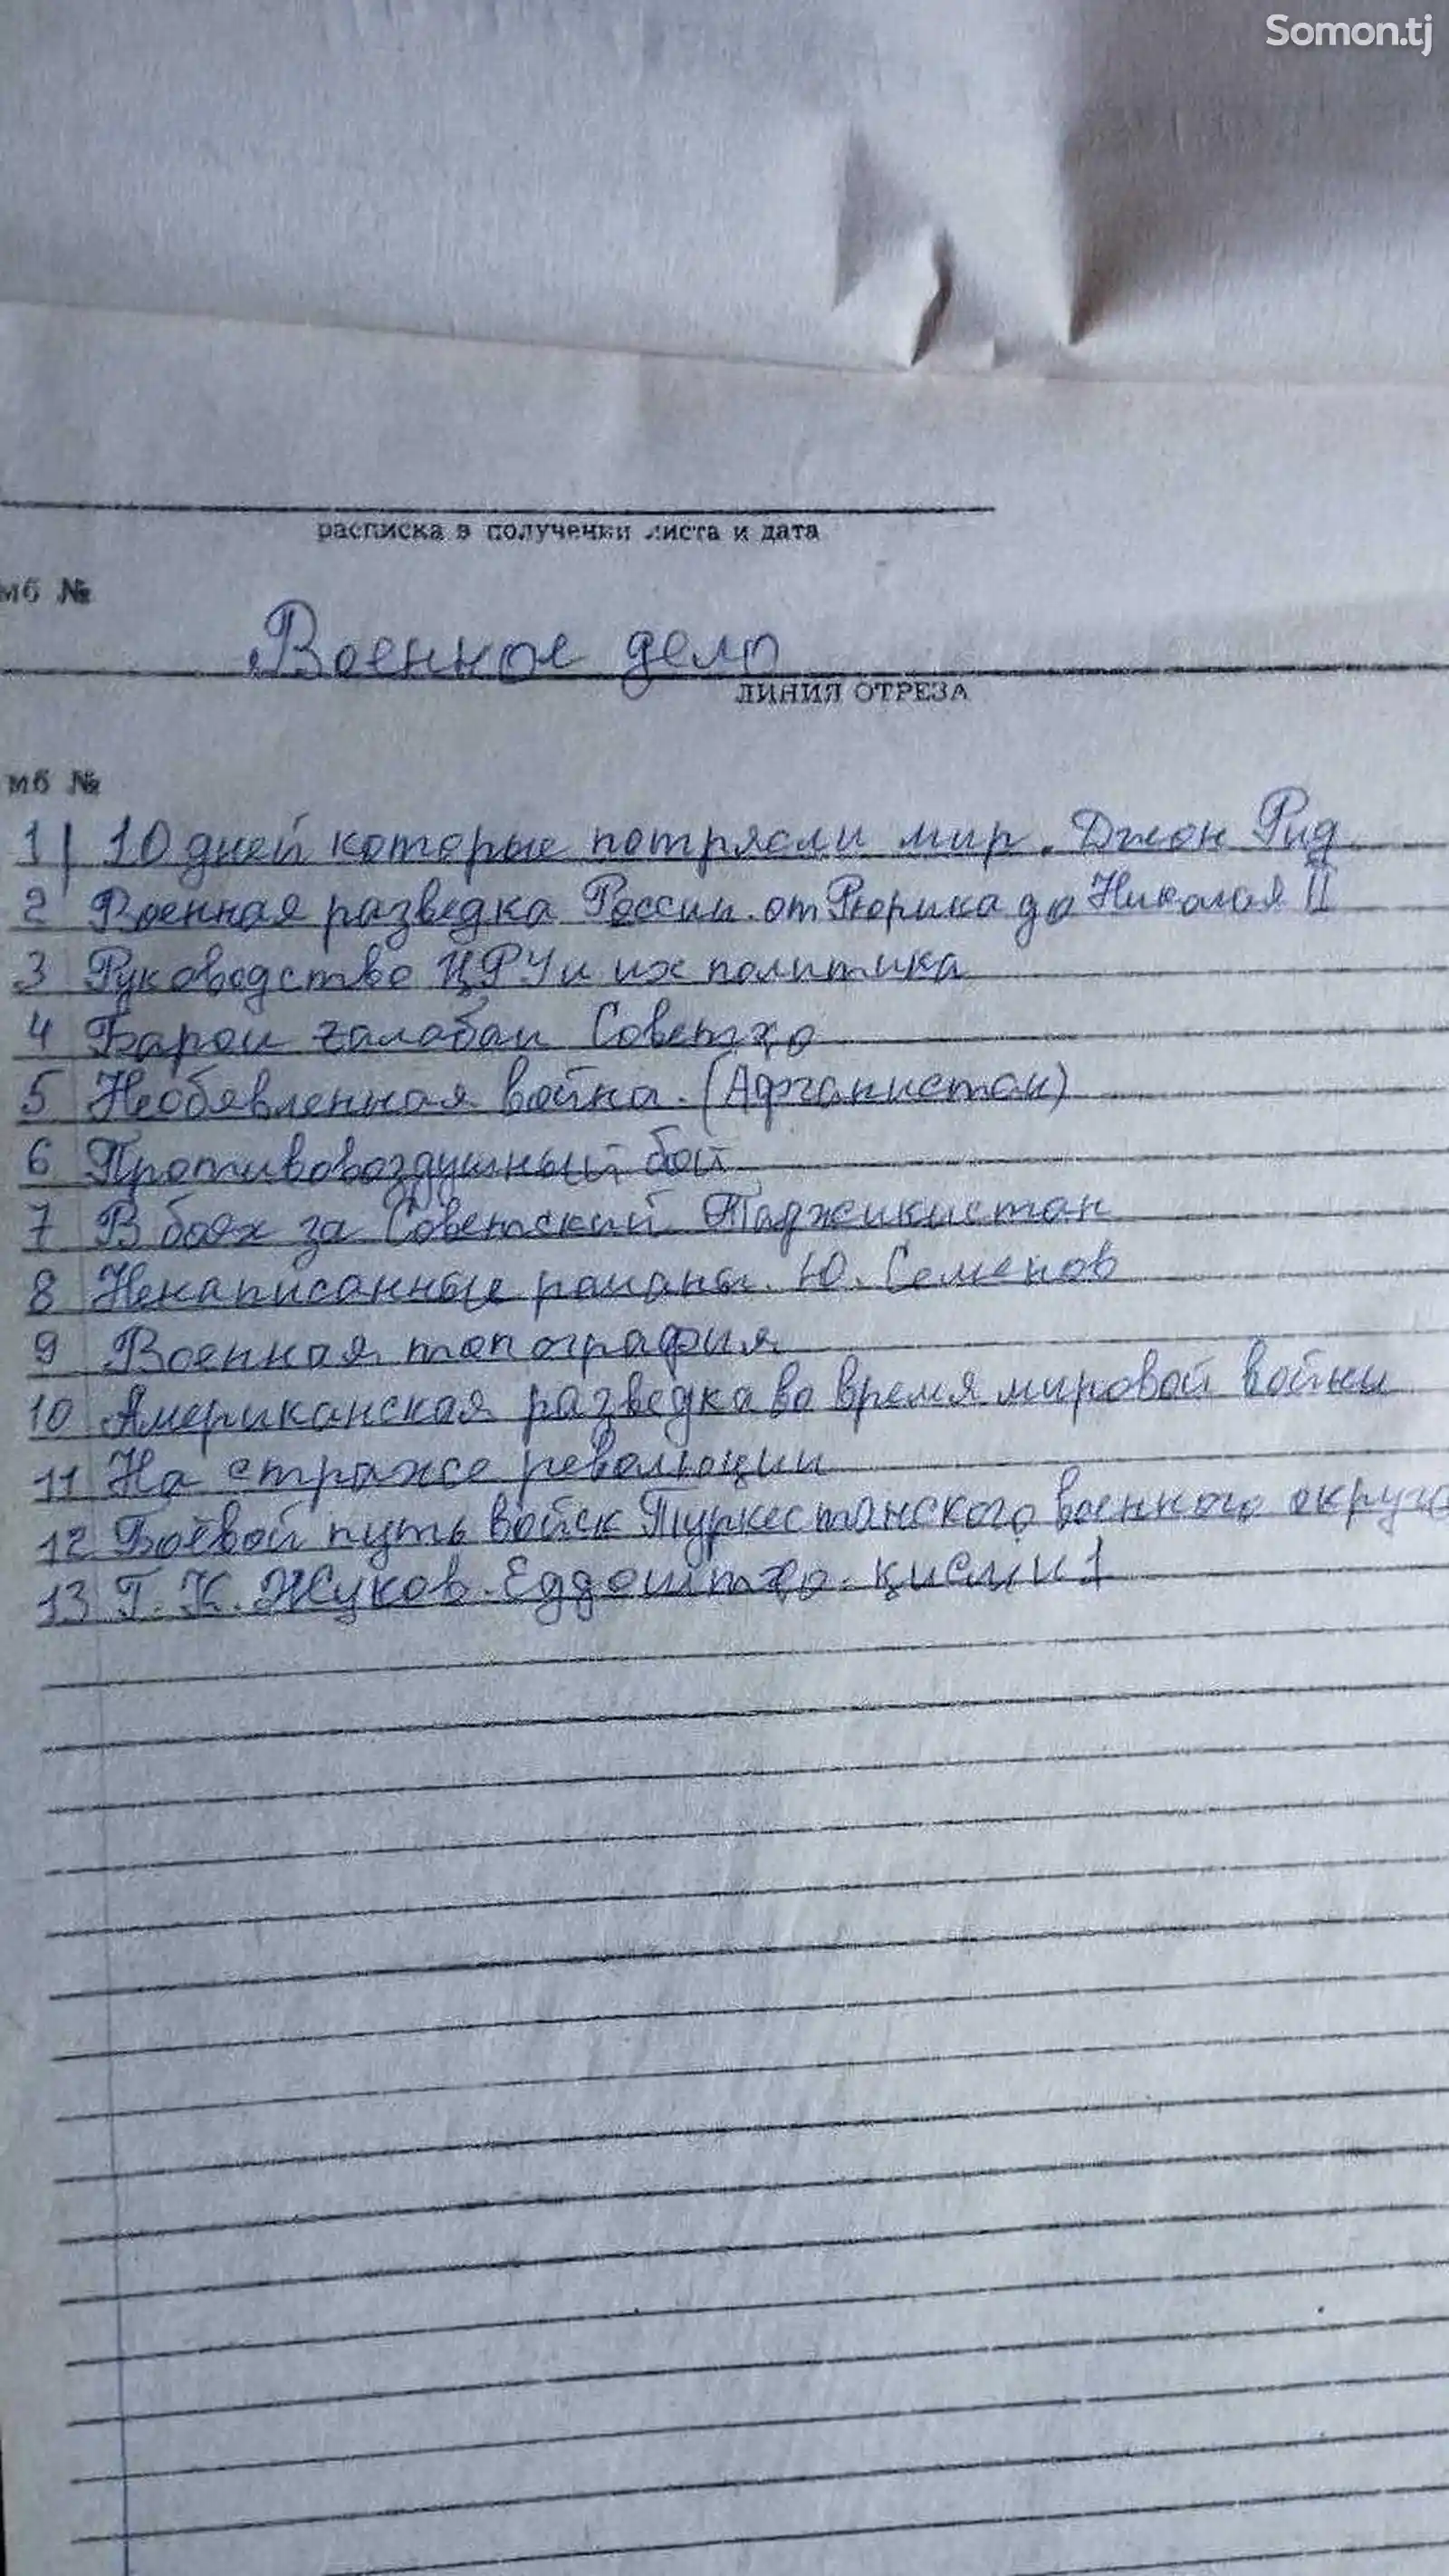 Somon.tj
расписка в получении листа и дата
мб №
Военное дело
ЛИНИЯ ОТРЕЗА
мб №
1 10 дней которые потрясли мир. Джон Рид
2 Военная разведка России от Рюрика до Николая II
3 Руководство ЦРУ и их политика
4 Барои галабаи Советҳо
5 Необявленная война. (Афганистан)
6 Противовоздушный бой
7 В боях за Советский Таджикистан
8 Ненаписанные романы. Ю. Семенов
9 Военная топография
10 Американская разведка во время мировой войны
11 На страже революции
12 Боевой путь войск Туркестанского военного округа
13 Г. К. Жуков. Ёддоштҳо. қисми 1